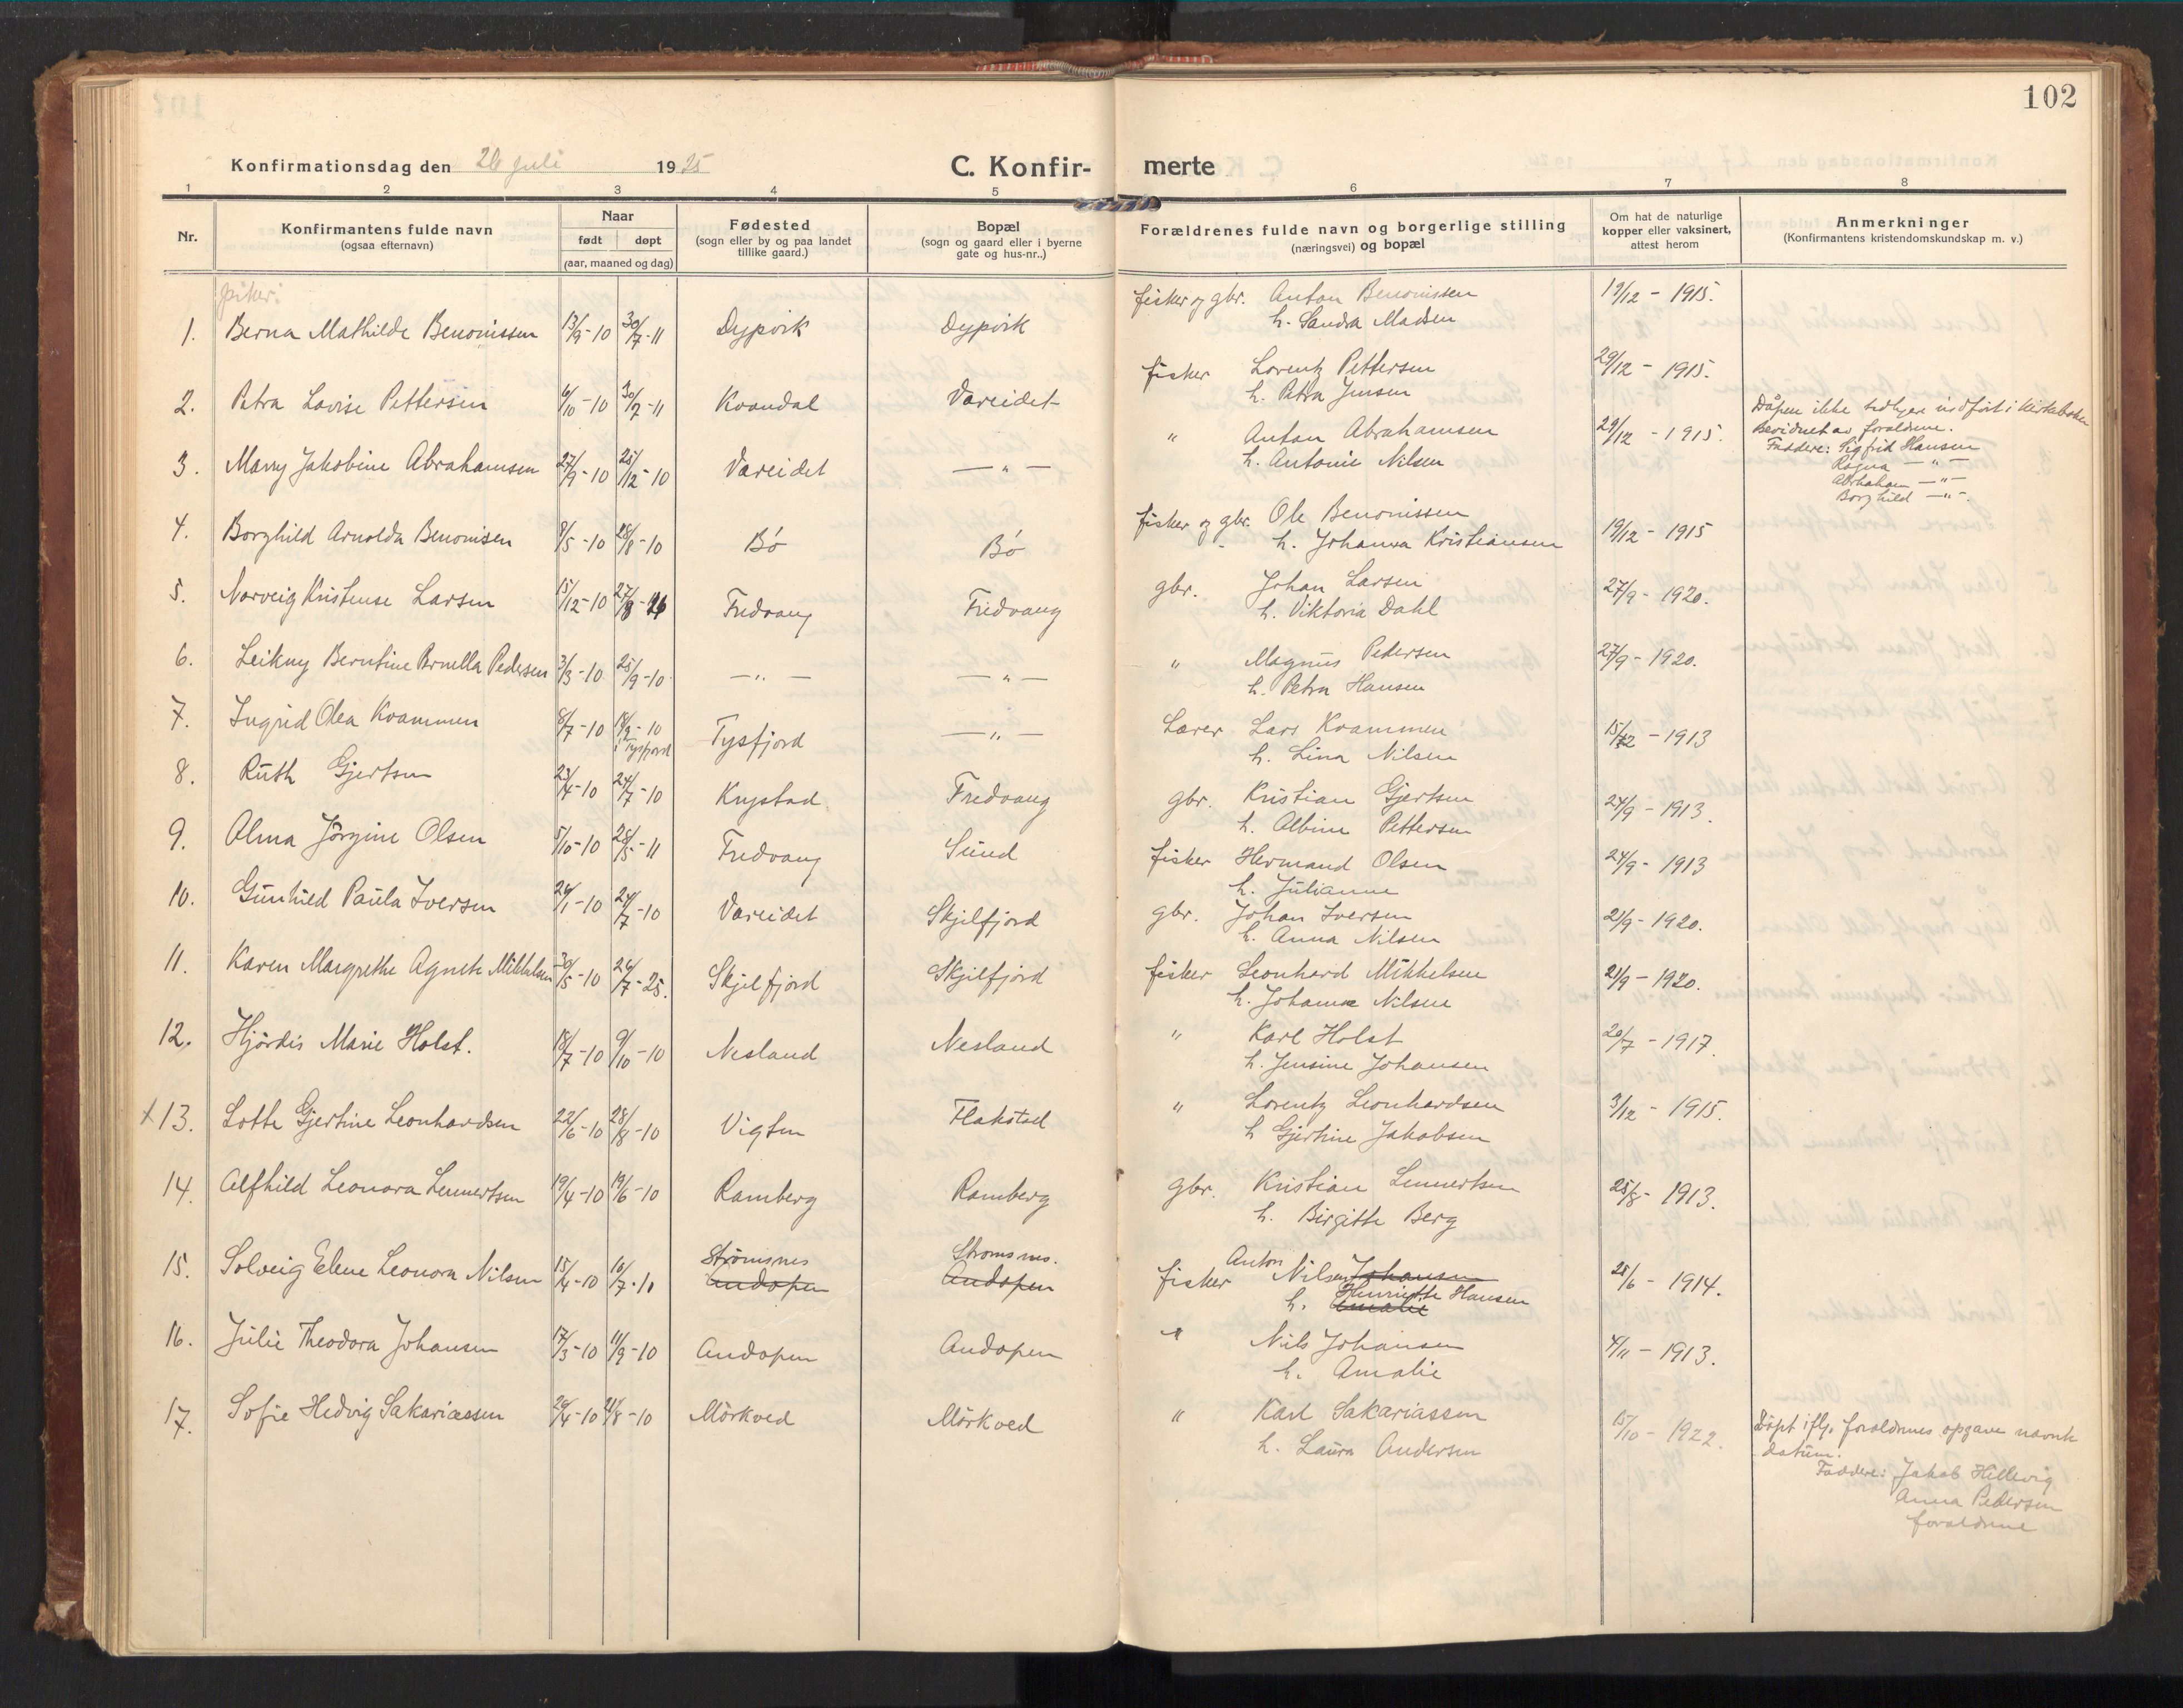 102
Konfirmationsdag den 26 juli 1925
C. Konfir-merte
1 2 3 4 5 6 7 8
Nr.
Konfirmantens fulde navn
(ogsaa efternavn)
Naar
født døpt
(aar, maaned og dag)
Fødested
(sogn eller by og paa landet
tillike gaard.)
Bopæl
(sogn og gaard eller i byerne
gate og hus-nr..)
Forældrenes fulde navn og borgerlige stilling
(næringsvei) og bopæl
Om hat de naturlige
kopper eller vaksinert,
attest herom
Anmerkninger
(Konfirmantens kristendomskundskap m. v.)
piker:
1. Berna Mathilde Benonissen 13/9-10 30/7-11 Dypvik Dypvik fisker og gbr. Anton Benonissen 19/12 - 1915.
h. Sandra Madsen
2. Petra Lovise Pettersen 6/10-10 30/7-11 Kvandal Vareidet fisker Lorentz Pettersen 29/12 - 1915.
h. Petra Jensen
3. Marry Jakobine Abrahamsen 27/9-10 25/12-10 Vareidet — " — " Anton Abrahamsen 29/12 - 1915.
h. Antonie Nilsen
Dåpen ikke tidligere indført i kirkeboken
Bevidnet av foreldrene.
Faddere: Sigfrid Hansen
Ragna — " —
Abraham — " —
Borghild — " —
4. Borghild Arnolda Benonisen 8/5-10 28/8-10 Bö Bö fisker og gbr. Ole Benonissen 19/12 - 1915
h. Johanna Kristiansen
5. Norveig Kristense Larsen 15/12-10 Fredvang Fredvang gbr. Johan Larsen 27/9 - 1920.
h. Viktoria Dahl
6. Leikny Berntine Pedersen 3/3-10 25/9-10 — " — — " — " Magnus Pedersen 27/9 - 1920.
h. Petra Hansen
7. Ingrid Olea Kvammen 8/7-10 18/9-10 Tysfjord — " — Lærer Lars Kvammen 15/12 - 1913
i Tysfjord
h. Lina Nilsen
8. Ruth Gjertsen 23/4-10 24/7-10 Krystad Fredvang gbr. Kristian Gjertsen 24/9 - 1913.
h. Albine Pettersen
9. Alma Jörgine Olsen 5/10-10 28/5-11 Fredvang Sund fisker Hermand Olsen 24/9 - 1913
h. Julianne
10. Gunhild Paula Iversen 26/1-10 24/7-10 Vareidet Skjelfjord gbr. Johan Iversen 21/9 - 1920.
h. Anna Nilsen
11. Karen Margrethe Agnete Mikkelsen 30/5-10 26/7-25. Skjelfjord Skjelfjord fisker Leonhard Mikkelsen 21/9 - 1920.
h. Johanna Nilsen
12. Hjördis Marie Holst. 18/7-10 9/10-10 Nesland Nesland " Karl Holst 20/7 - 1917.
h. Jensine Johansen
x 13. Lotte Gjertine Leonhardsen 22/6-10 28/8-10 Vigten Flakstad " Lorentz Leonhardsen 3/12 - 1915.
h Gjertine Jakobsen
14. Alfhild Leonora Lennertsen 19/4-10 19/6-10 Ramberg Ramberg gbr. Kristian Lennertsen 25/8 - 1913.
h. Birgitte Berg
15. Solveig Elene Leonora Nilsen 15/4-10 10/7-10 Strömsnes Andopen Strömsnes. Andopen fisker Anton Nilsen Johansen 25/6 - 1914.
h. Henriette Hansen Amalie
16. Julie Theodora Johansen 17/3-10 11/9-10 Andopen Andopen " Nils Johansen 4/11 - 1913.
h. Amalie
17. Sofie Hedvig Sakariassen 20/4-10 21/8-10 Mörkved Mörkved " Karl Sakariassen 15/10 - 1922.
h. Laura Andersen
Döpt iflg. foreldrenes opgave nævnte
datum.
Faddere: Jakob Hillevig
Anna Pedersen
foreldrene